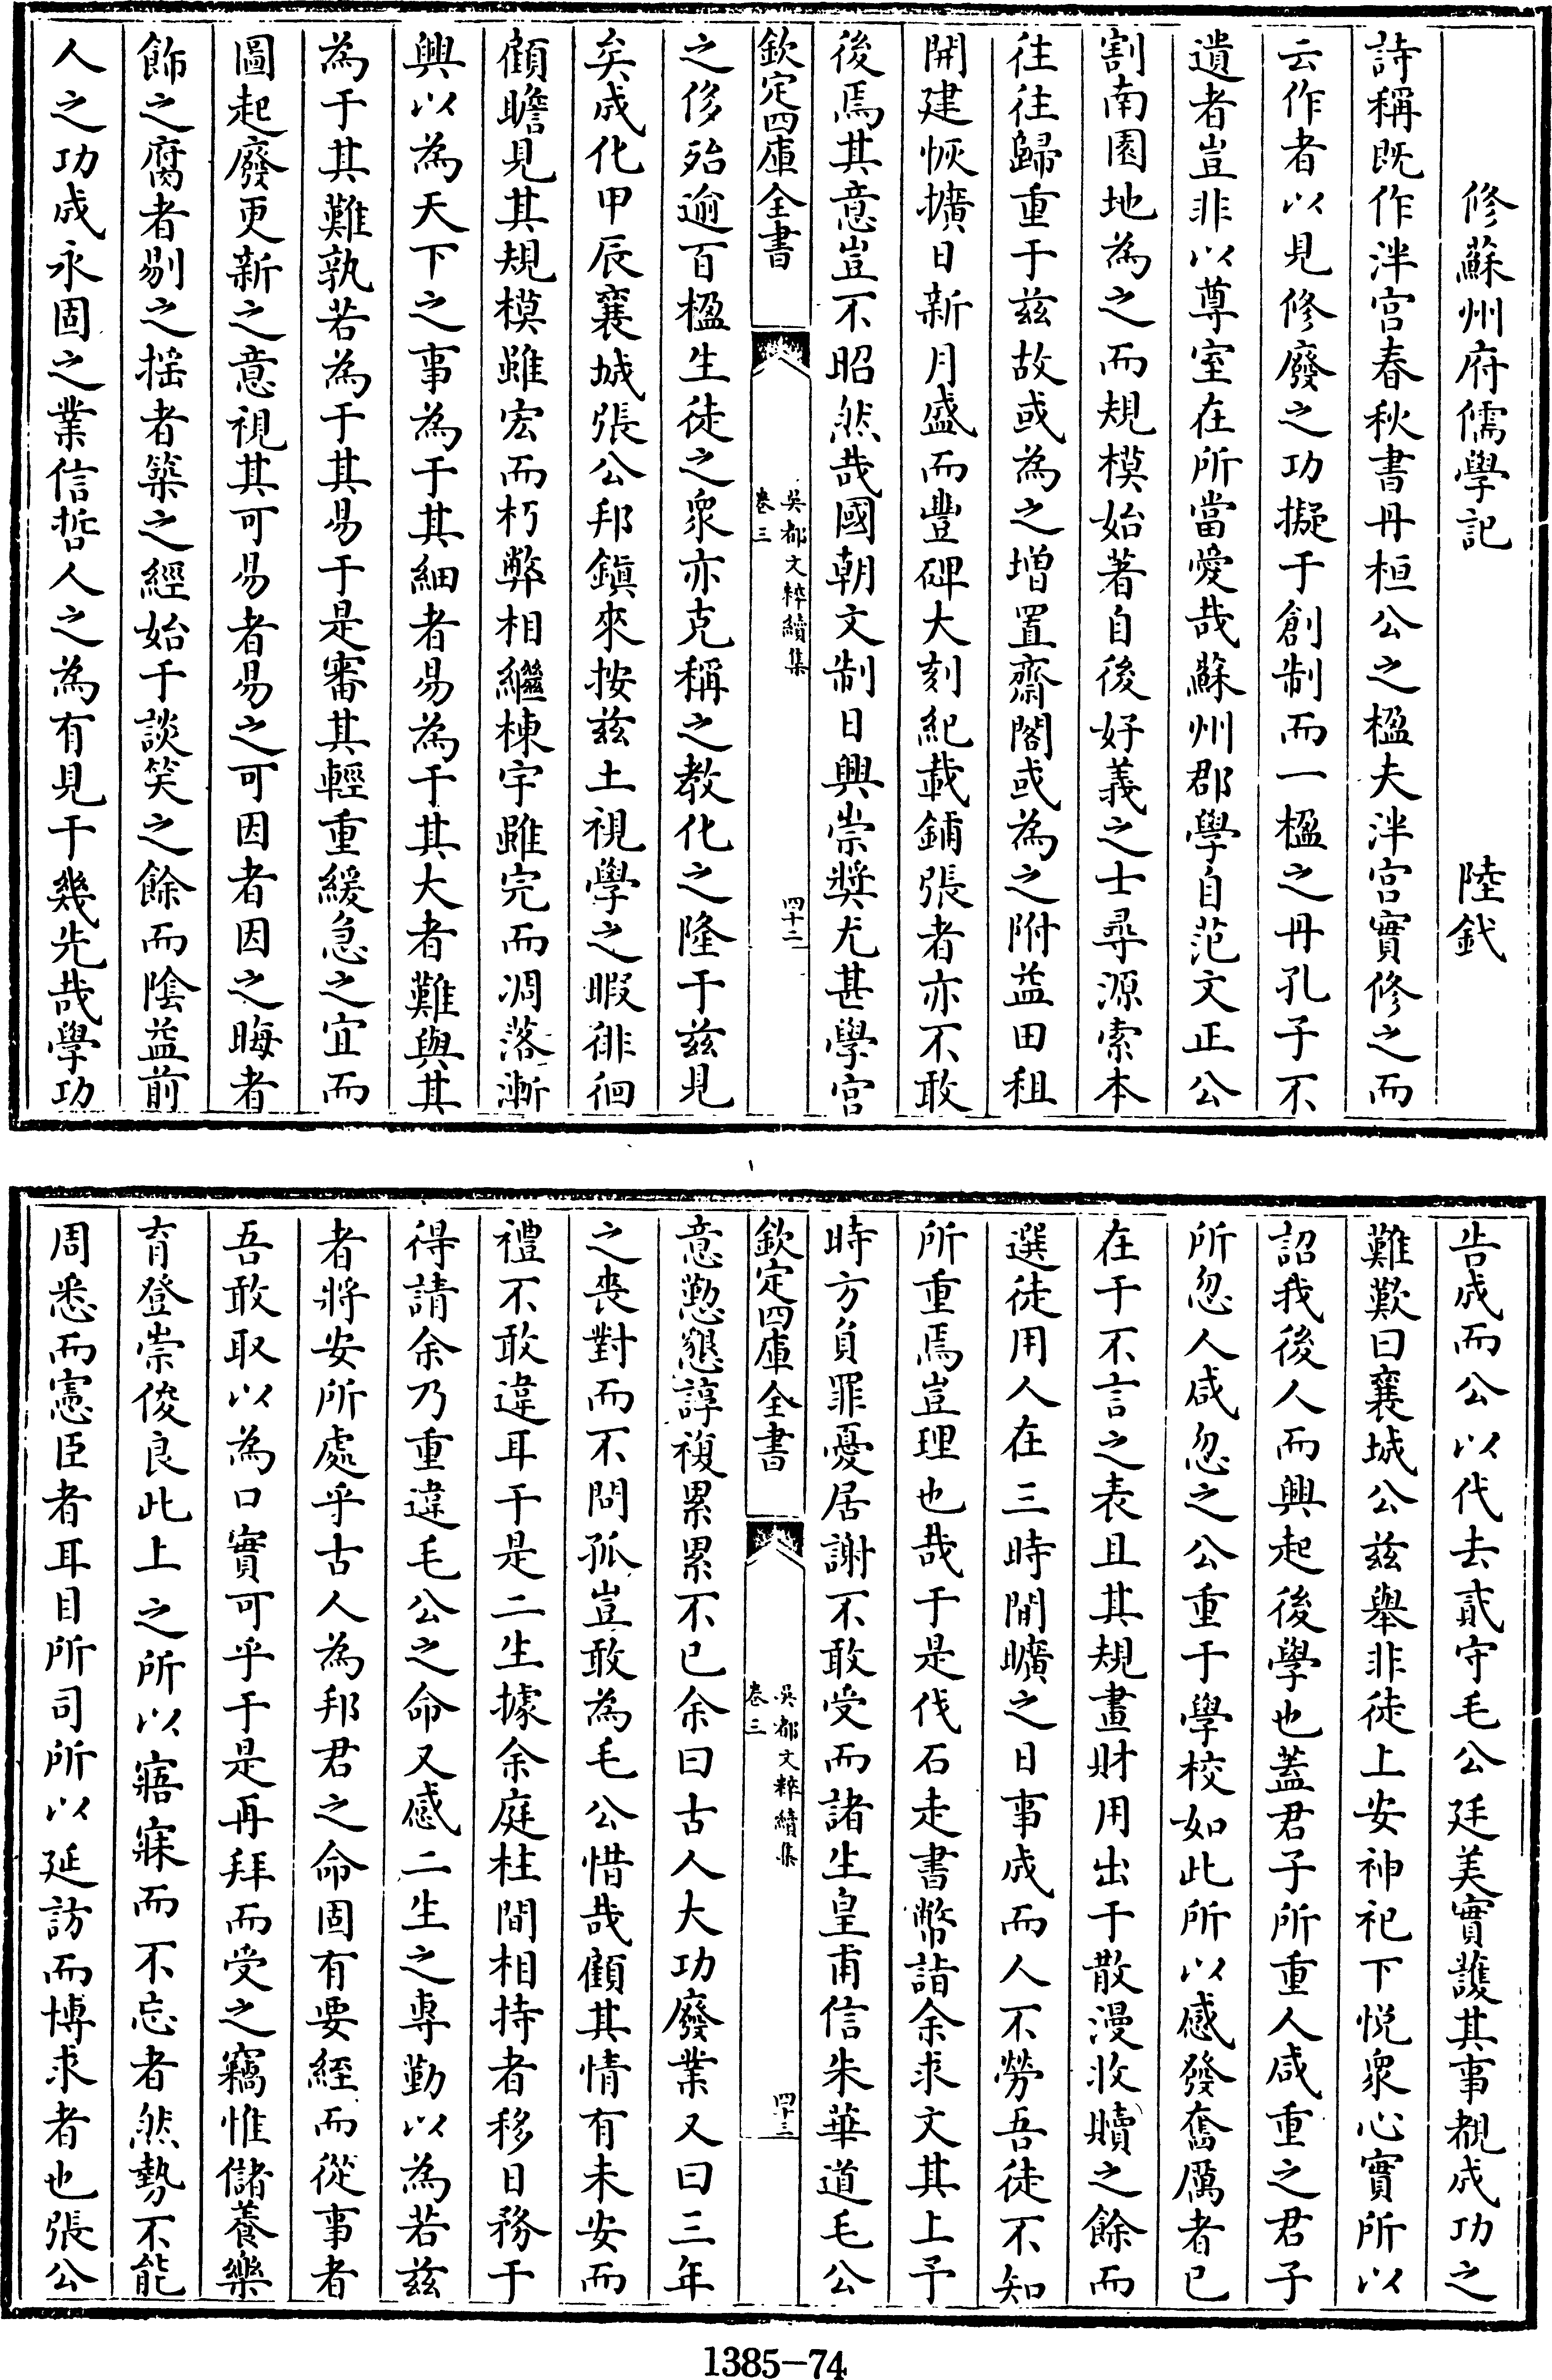 修蘇州府儒學記 陸釴
詩稱既作泮宮春秋書丹桓公之楹夫泮宮實修之而
云作者以見修廢之功擬于創制而一楹之丹孔子不
遺者豈非以尊室在所當愛哉蘇州郡學自范文正公
割南園地為之而規模始著自後好義之士尋源索本
往往歸重于兹故或為之增置齋閣或為之附益田租
開建恢擴日新月盛而豐碑大刻紀載鋪張者亦不敢
後焉其意豈不昭然哉國朝文制日興崇奬尤甚學宮
欽定四庫全書
吳都文粹續集
卷三
四十二
之侈殆逾百楹生徒之衆亦克稱之教化之隆于兹見
矣成化甲辰襄城張公邦鎮來按兹土視學之暇徘徊
顧瞻見其規模雖宏而朽弊相繼棟宇雖完而凋落漸
興以為天下之事為于其細者易為于其大者難與其
為于其難孰若為于其易于是審其輕重緩急之宜而
圖起廢更新之意視其可易者易之可因者因之晦者
飾之腐者剔之搖者築之經始于談笑之餘而陰益前
人之功成永固之業信哲人之為有見于幾先哉學功
告成而公以代去貳守毛公廷美實護其事覩成功之
難歎曰襄城公兹舉非徒上安神祀下悦衆心實所以
詔我後人而興起後學也蓋君子所重人咸重之君子
所忽人咸忽之公重于學校如此所以感發奮厲者已
在于不言之表且其規畫財用出于散漫收贖之餘而
選徒用人在三時間曠之日事成而人不勞吾徒不知
所重焉豈理也哉于是伐石走書幣詣余求文其上予
時方負罪憂居謝不敢受而諸生皇甫信朱華道毛公
欽定四庫全書
吳都文粹續集
卷三
四十三
意懃懇諄複累累不已余曰古人大功廢業又曰三年
之喪對而不問孤豈敢為毛公惜哉顧其情有未安而
禮不敢違耳于是二生據余庭柱間相持者移日務于
得請余乃重違毛公之命又感二生之專勤以為若兹
者將安所處乎古人為邦君之命固有要絰而從事者
吾敢取以為口實可乎于是再拜而受之竊惟儲養樂
育登崇俊良此上之所以寤寐而不忘者然勢不能
周悉而憲臣者耳目所司所以延訪而博求者也張公
1385-74